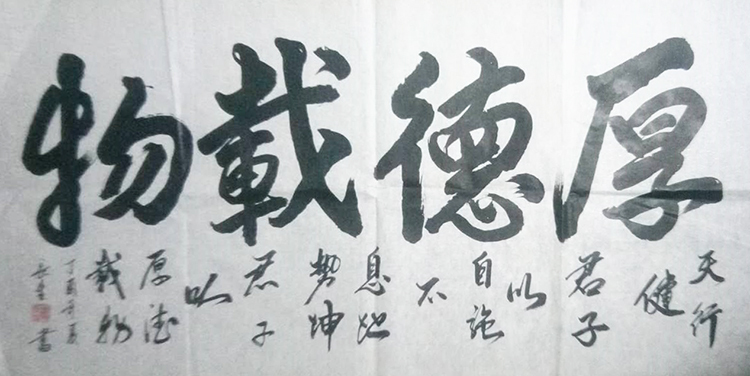 厚德載物
天行
健
君子
以
自強
不
息地
勢坤
君子
以
厚德
載物
丁酉 夏
書